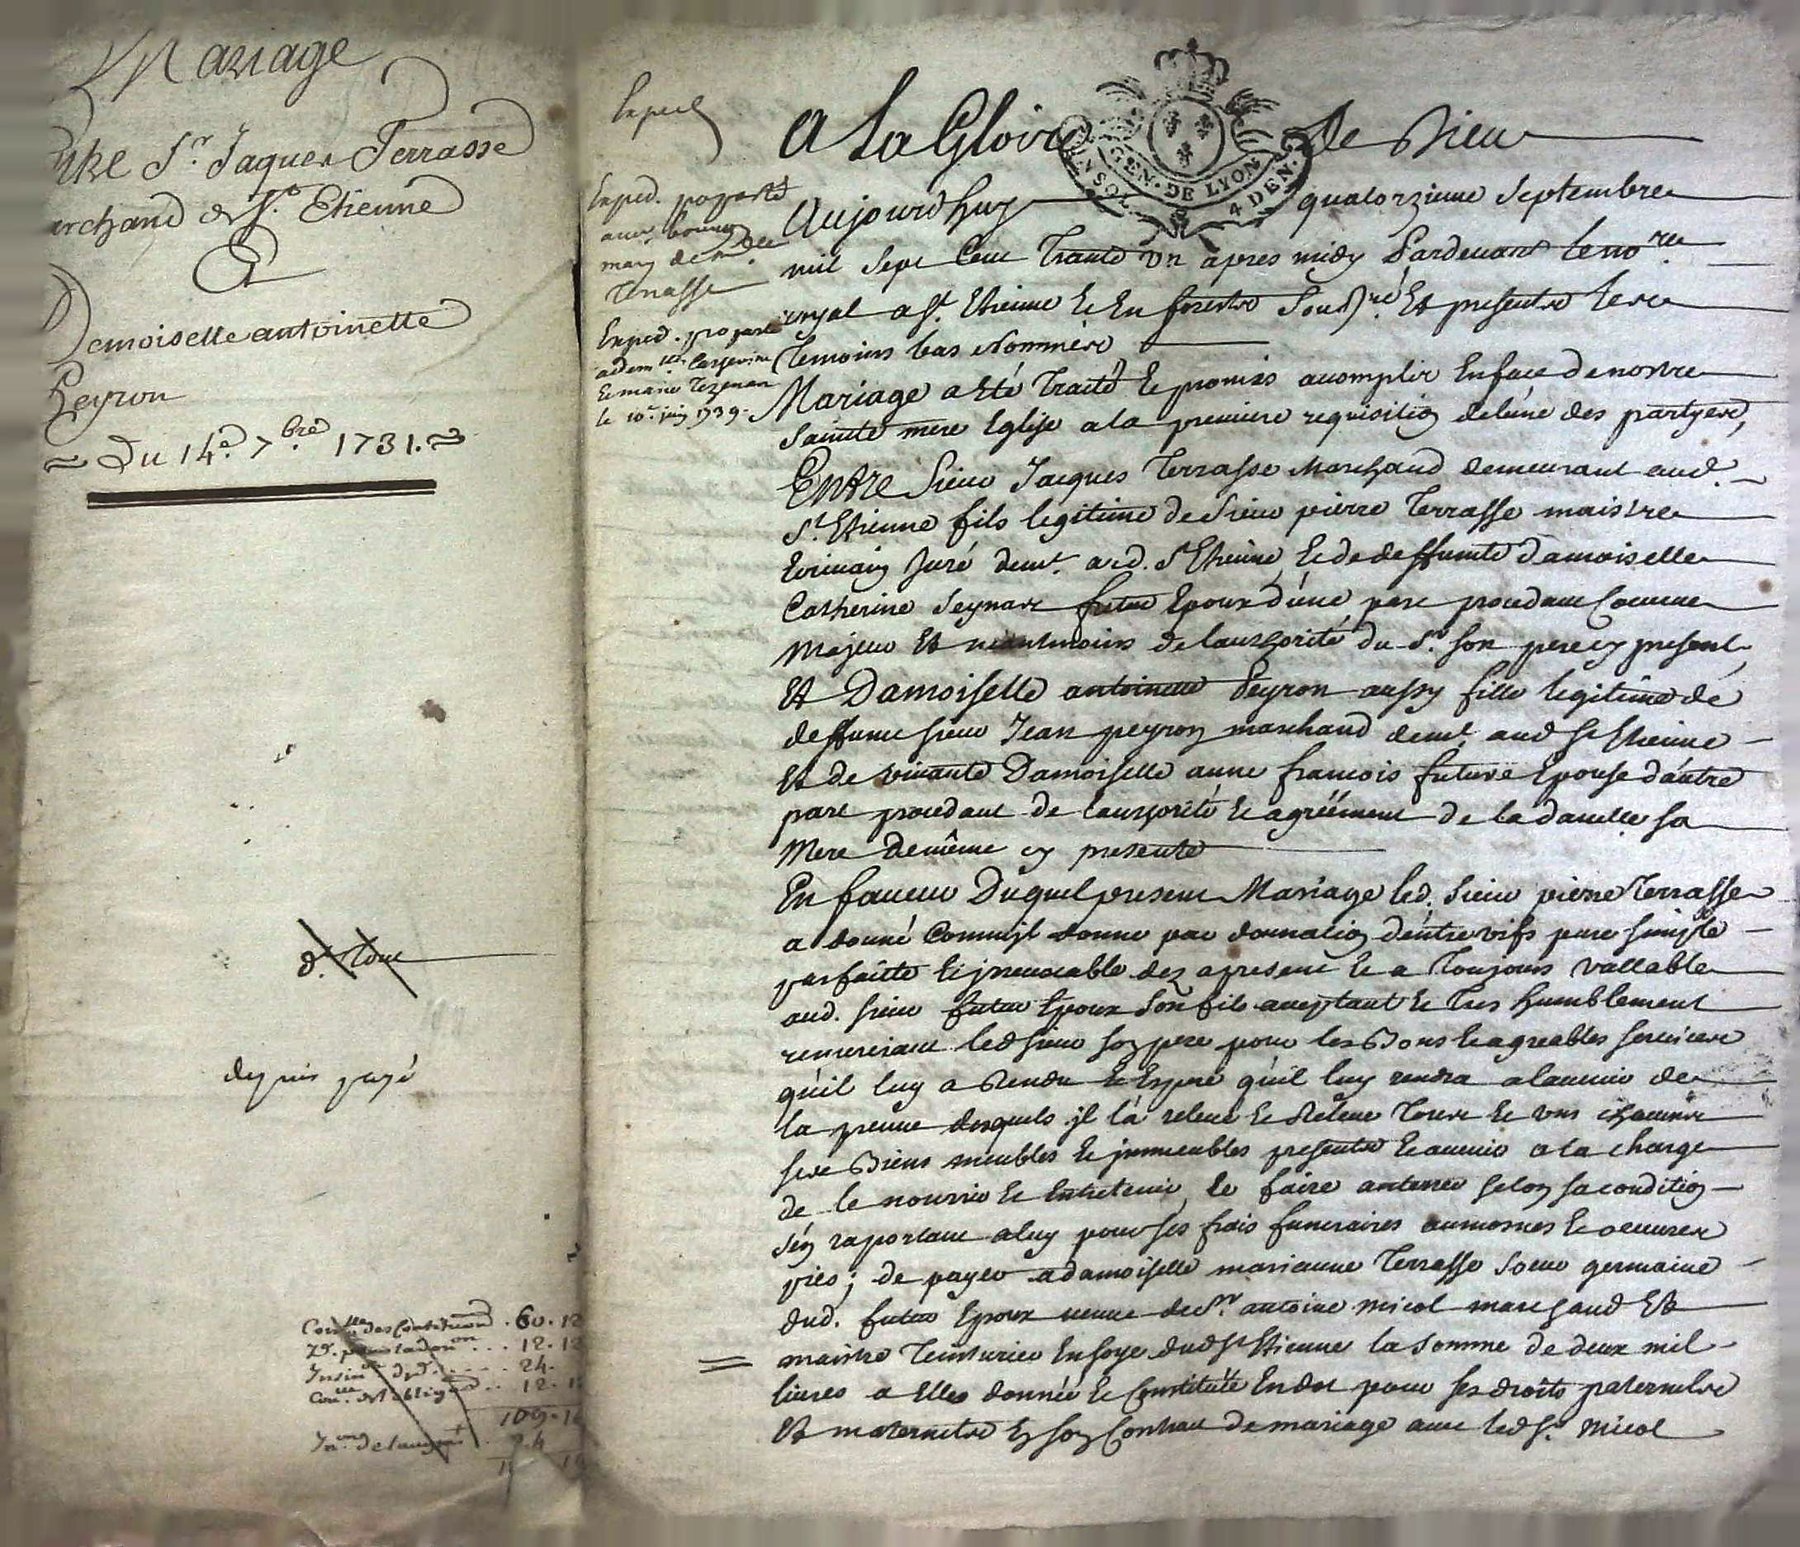 Mariage
Entre Sr. Jaques Terrasse
marchand de St. Etienne
Et
Demoiselle antoinette
Peyron
Du 14e. 7bre. 1731.
depuis payé
60. 12
12. 12
24.
12. 1
109. 1
Exped
Exped.
mary de
terrasse
Exped.
Marie Tezenas
le 10e. juin 1739.
A La Gloire de Dieu
GEN. DE LYON
4 DEN.
Aujourdhuy quatorzieme Septembre
mil Sept Cent Trante Un apres midy Pardevant le nore.
royal a St. Etienne Et En forestz Sousné. Et presentz les
Temoins bas Nommés
Mariage a Eté Traité Et promis acomplir En face de nostre
Sainte mere Eglise a la premiere requisition de l'une des partyes,
Entre Sieur Jacques Terrasse Marchand demeurant aud.
St. Etienne fils legitime de Sieur pierre Terrasse maistre
Ecrivain Juré demt. aud. St Etienne, Et de deffunte damoiselle
Catherine Seynas futur Epoux d'une part procedant Comme
Majeur Et neantmoins de lauthorité du Sr. Son pere cy present,
Et Damoiselle antoinette Peyron aussy fille legitime de
deffunt sieur Jean peyron marchand demt. aud St Etienne
Et de vivante Damoiselle anne francois future Epouse d'autre
part procedant de lauthorité Et agréement de lad damelle sa
Mere demême cy presente
En faveur Duquel present Mariage led. Sieur pierre Terrasse
a donné Comme il donne par donnation d'entre vifs pure simple
parfaitte Et jrrevocable dez apresent Et a Toujours vallable
aud. sieur futur Epoux Son fils acceptant Et Tres humblement
remerciant led sieur son pere pour les Bons Et agreables services
qu'il luy a Rendu Et Espere qu'il luy rendra a lavenir de
la preuve desquels jl la releve Et Releve Tous Et uns chacuns
ses Biens meubles Et jmmeubles presents Et avenir a la charge
de le nourrir Et Entretenir, le faire anterrer selon sa condition
s'en raportant a luy pour ses frais funeraires aumosnes Et oeuvres
pies; de payer a damoiselle marianne Terrasse Soeur germaine
dud. futur Epoux veuve de Sr. antoine micol marchand Et
maistre Teinturier En soye dud St Etienne la somme de deux mil
livres a Elle donnée Et Constituée En dot pour ses droits paternels
Et maternels En son Contract de mariage avec led Sr. Micol